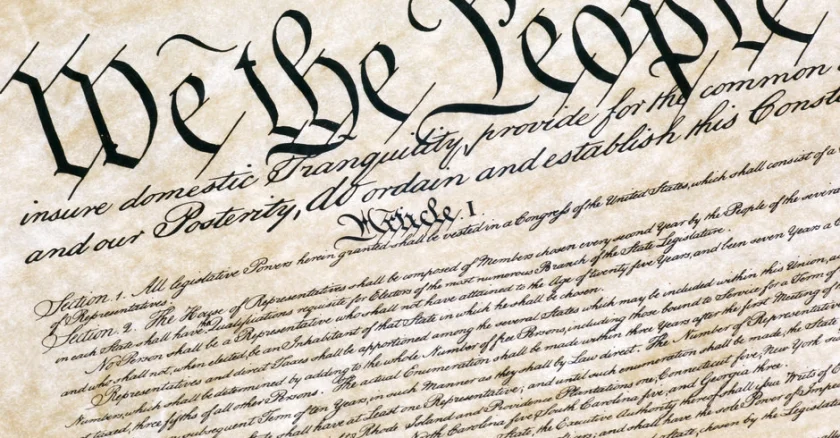 We the People
insure domestic Tranquility, provide for the common
and our Posterity, do ordain and establish this Const
Article. I.
Section. 1. All legislative Powers herein granted shall be vested in a Congress of the United States, which shall consist of a
of Representatives.
Section. 2. The House of Representatives shall be composed of Members chosen every second Year by the People of the several
in each State shall have the Qualifications requisite for Electors of the most numerous Branch of the State Legislature.
No Person shall be a Representative who shall not have attained to the Age of twenty five Years, and been seven Years a
and who shall not, when elected, be an Inhabitant of that State in which he shall be chosen.
Representatives and direct Taxes shall be apportioned among the several States which may be included within this Union,
Numbers, which shall be determined by adding to the whole Number of free Persons, including those bound to Service for a Term of
taxed, three fifths of all other Persons. The actual Enumeration shall be made within three Years after the first Meeting of
subsequent Term of ten Years, in such Manner as they shall by Law direct. The Number of Representatives
shall have at least one Representative; and until such enumeration shall be made, the State
Rhode Island and Providence Plantations one, Connecticut five, New York
North Carolina five, South Carolina five, and Georgia three.
State, the Executive Authority thereof shall issue Writs of
shall have the sole Power of
state, chosen by the